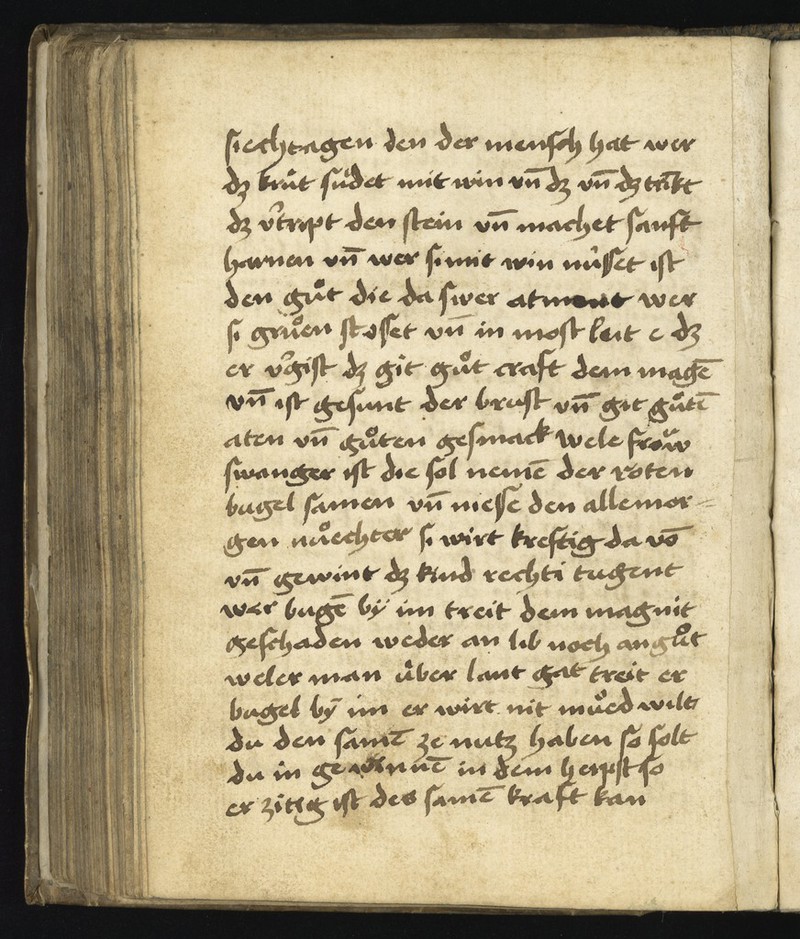 siechtagen den der mensch hat wer
dz krut südet mit win vn̄ dz vn̄ dz trikt
dz v̾tript den stein vn̄ machet sanft
harnen vn̄ wer si mit win nüsset ist
den gůt die da swer atment wer
si grůen stosset vn̄ in most leit e dz
er v̾gist dz git gůt craft dem magē
vn̄ ist gesunt der brust vn̄ git gůtē
aten vn̄ gůten gesmack wele frow
swanger ist die sol nemē der roten
bugel samen vn̄ niesse den alle mor⸗
gen nůechter si wirt kreftig da vō
vn̄ gewint dz kind rechti tugent
wer bugē bÿ im treit dem mag nit
geschaden weder an lib noch an gůt
weler man über lant gat treit er
bugel bÿ im er wirt nit můed wilt
du den samē ze nutz haben so solt
du in gewinnē in dem herpst so
er zitig ist des samē kraft kan